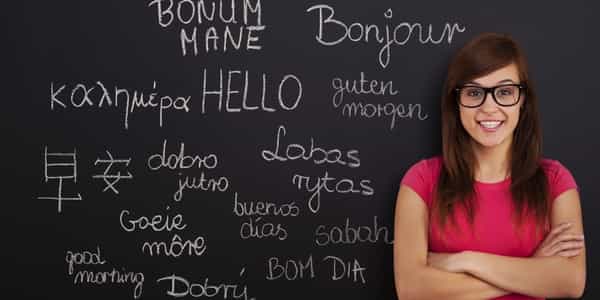 BONUM
MANE
Bonjour
καλημέρα
HELLO
guten
morgen
早安
dobro
jutro
Labas
rytas
Goeie
môre
buenos
días
sabah
good
morning
Dobrý
BOM DIA